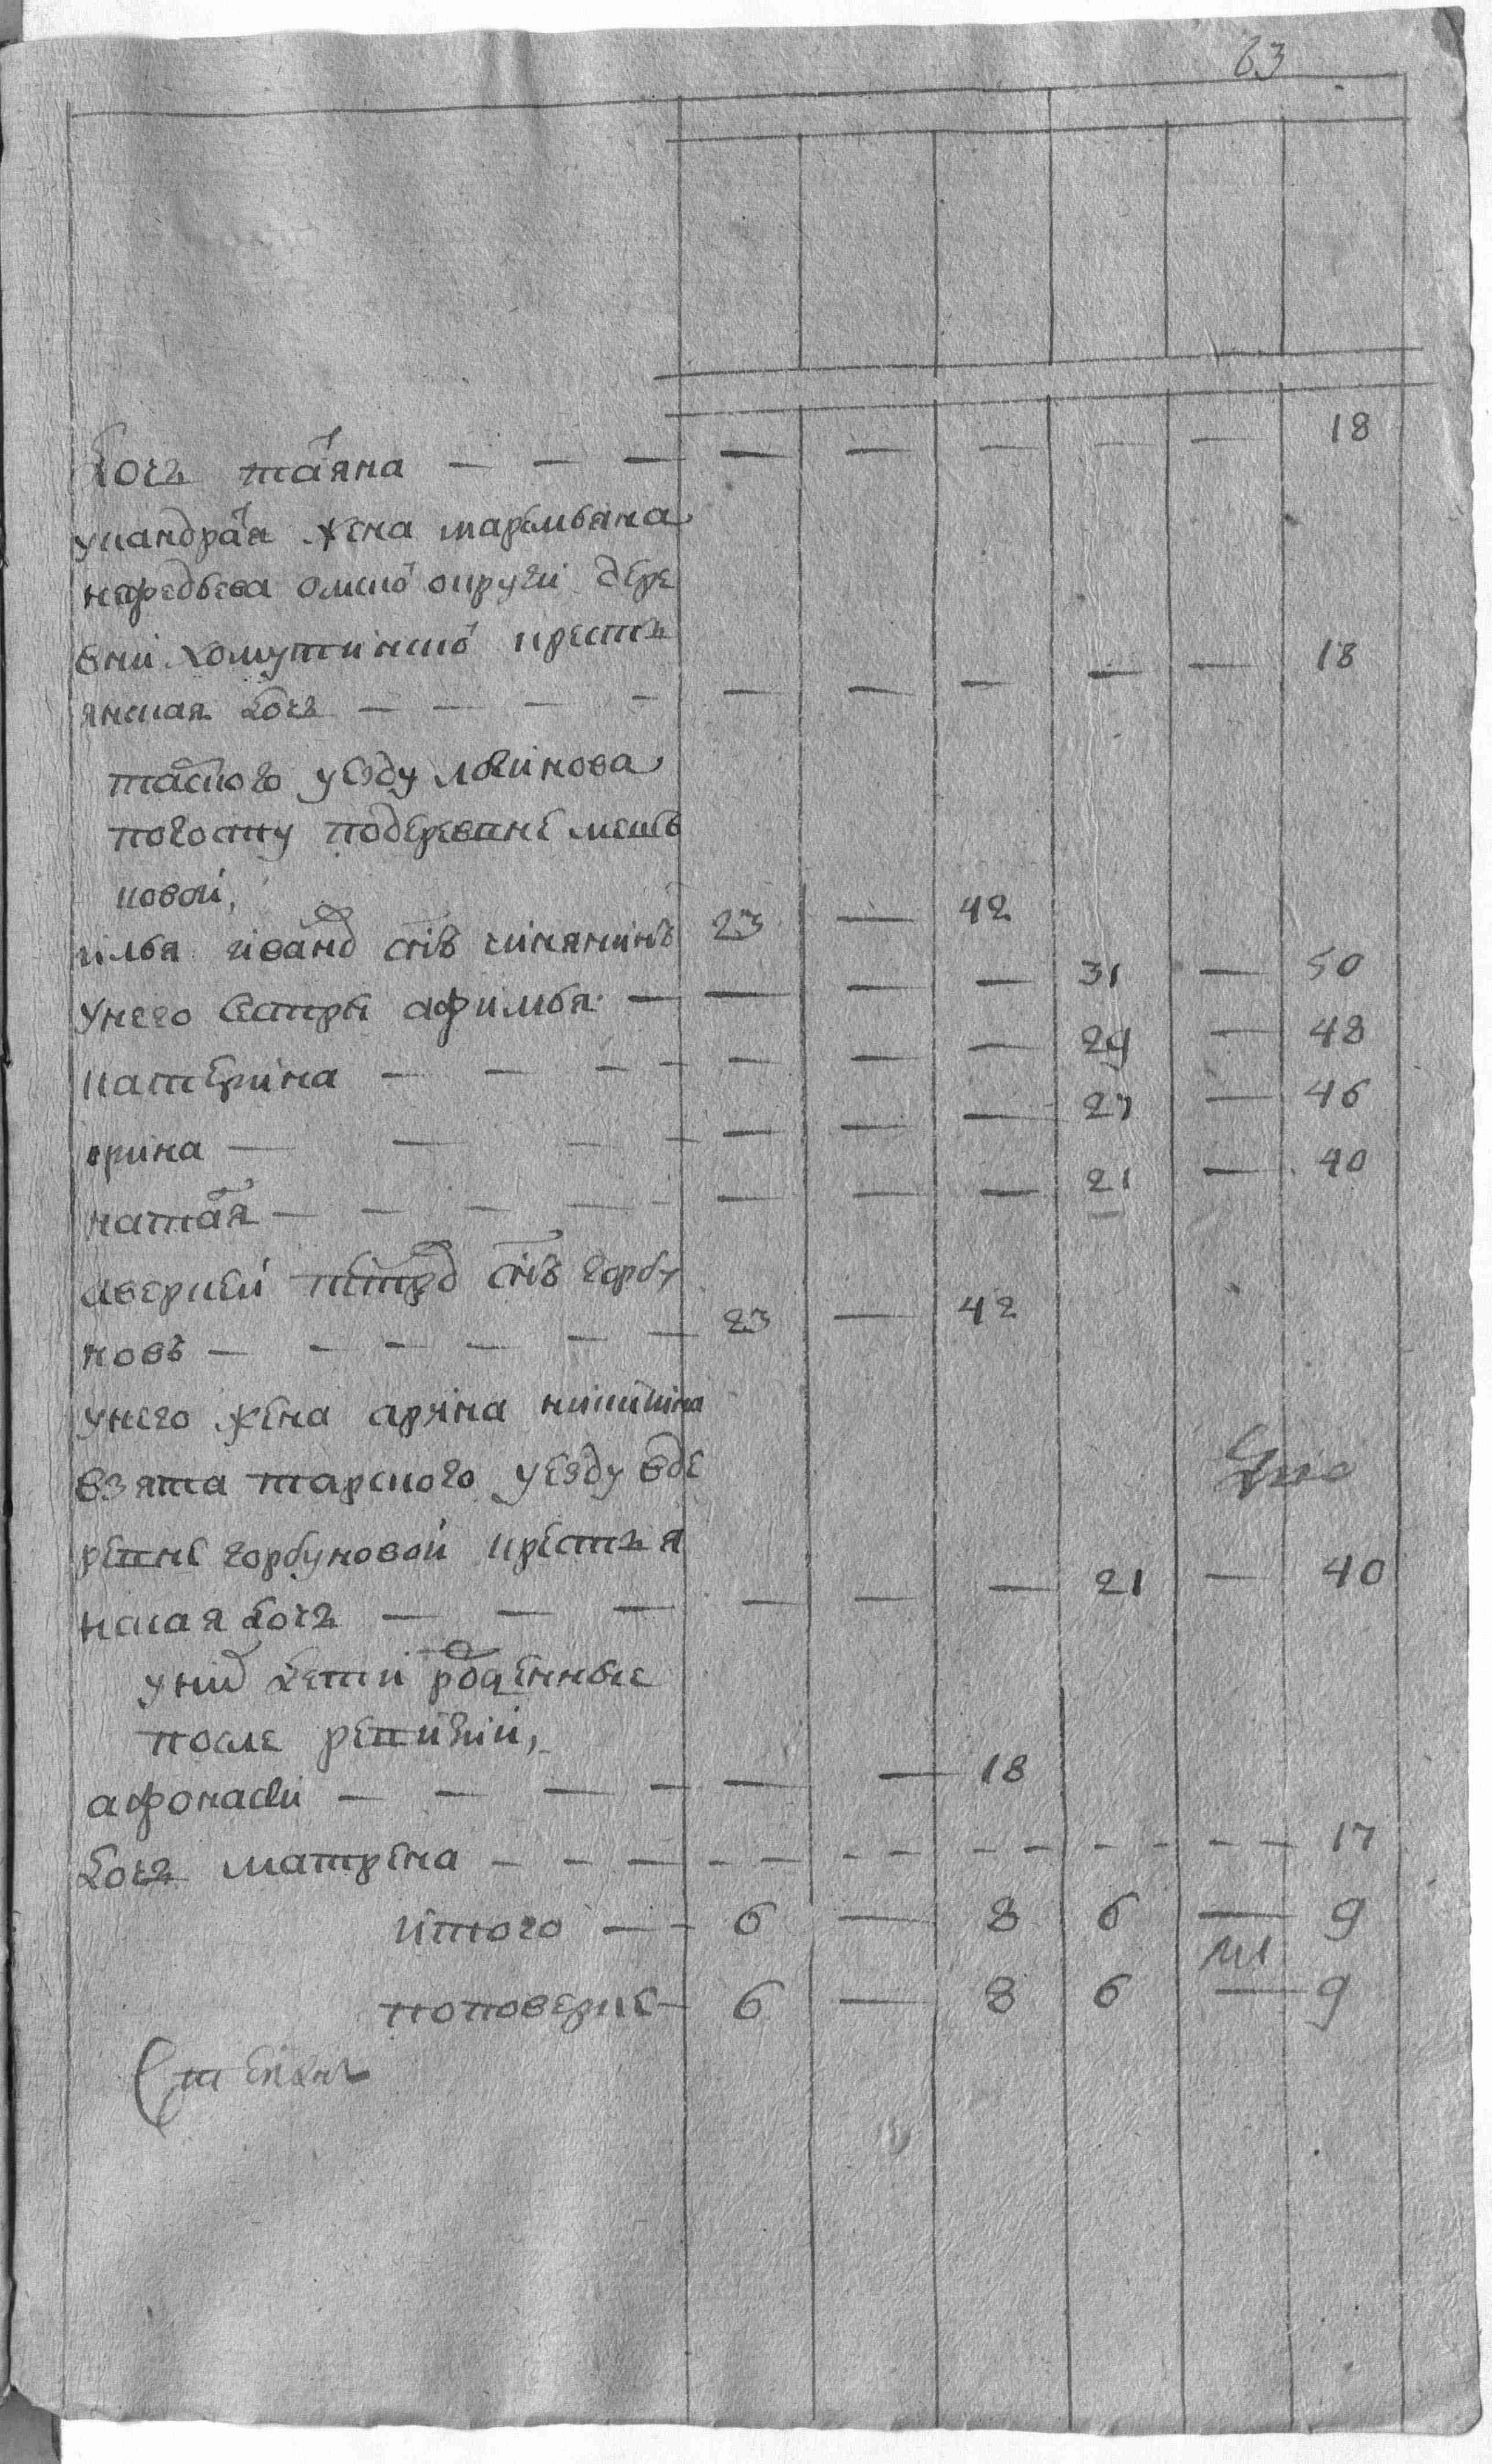 63
дочь татьяна — — — — — — — — 18
укандратья жена маремьяна
нефедьева омской округи дере
вни хомутинской крестья
янская дочь — — — — — — — — — 18
уезду логинова
погосту подеревне
ковой,
илья ивановъ сынъ чинянинъ 23 — 42
унего сестры афимья — — — — 31 — 50
катерина — — — — — — 29 — 48
орина — — — — — — 27 — 46
наталья — — — — — — — 21 — 40
аверкей петровъ сынъ горбу
новъ — — — — — — 23 — 42
унего жена арина никитина
взята тарского уезду вде
ревне горбуновой крестья
нская дочь — — — — — — 21 — 40
уних дети рожденные
после ревизии,
афонасеи — — — — — — 18
дочь матрена — — — — — — — — — — — 17
итого — — 6 — 8 6 — 9
поповерке — 6 — 8 6 — 9